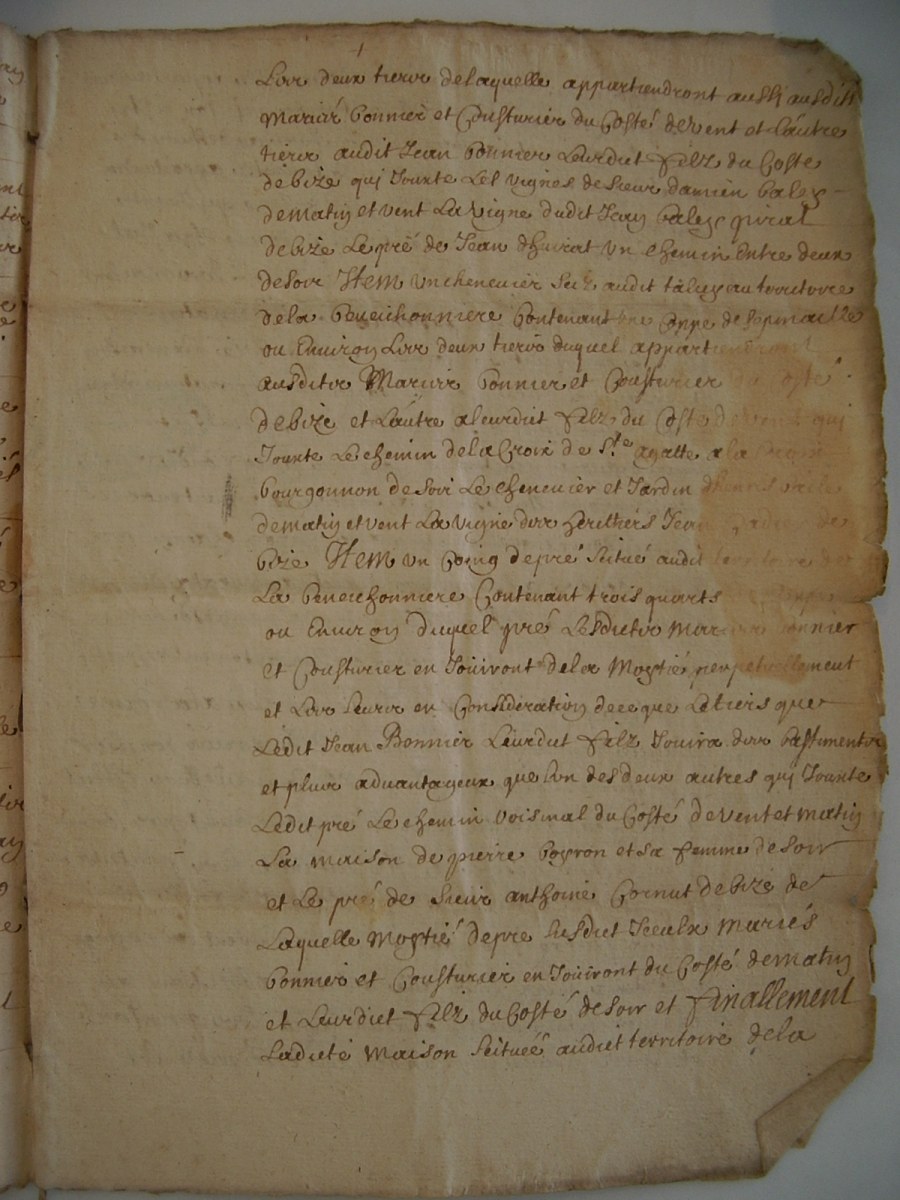 Les deux tiers delaquelle appartiendront aussi ausdits
Mariés Bonnier et Cousturier du Costé de vent et l'autre
tiers audit Jean Bonnier Leurdict filz du Coste
de bize qui Jouxte Les vignes de sieur damien Caley
de matin et vent La vigne dudit Jean Caley
de bize Le pré de Jean un chemin Entre deux
de soir Item un cheneuier audit au territoire
de la Contenant une Coppe de
ou Environ Les deux tiers duquel appartiendront
ausdits Mariés Bonnier et Cousturier du Costé
de bize et L'autre a leurdict filz du Coste de vent qui
Jouxte Le chemin dela Croix de S.te agatte a la
bourgonnon de soir Le cheneuier et Jardin
de matin et vent La vigne des heritiers Jean de
bize Item un Coing de pré scitué audit territoire de
La Contenant trois quarts
ou Environ duquel pré Lesdicts Mariés Bonnier
et Cousturier en Jouiront dela Moytié perpetuellement
et Les leurs en Consideration dece que Le tiers que
Ledit Jean Bonnier Leurdict filz Jouira des bastimentz
est plus advantageux que l'un des deux autres qui Jouxte
Ledit pré Le chemin voisinal du Costé de vent et matin
La maison de pierre Coyron et sa femme de soir
et Le pré de sieur anthoine Cornut de bize de
Laquelle Moytié de pre susdict Iceulx Mariés
Bonnier et Cousturier en Jouiront du Costé de matin
et Leurdict filz du Costé de soir et finallement
Ladicte Maison scituée audict territoire de la